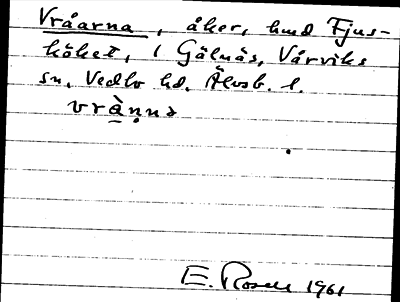 Vråarna, åker, hmd Fjus-
kåket, i Gälnäs, Vårviks
sn, Vedbo hd, Älvsb. l.
vrànna
E. Rosell 1961